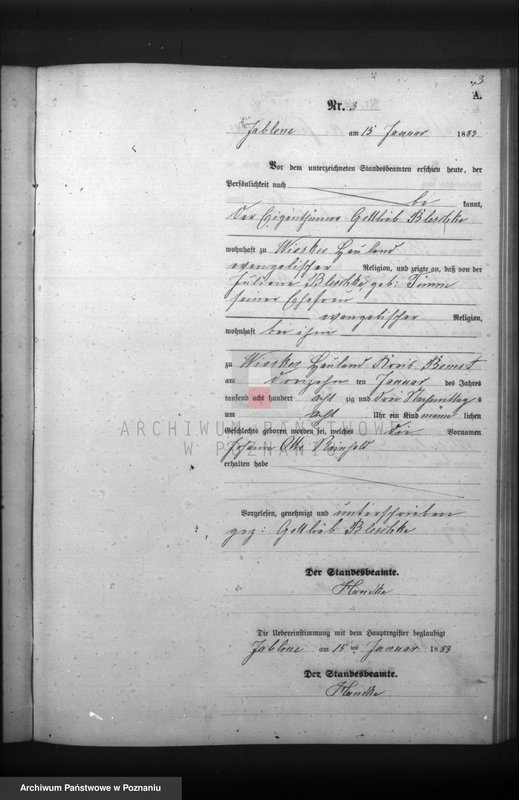 3
A.
Nr. 3
Jablone am 15 Januar 1883
Vor dem unterzeichneten Standesbeamten erschien heute, der
Persönlichkeit nach be kannt,
Der Eigenthümer Gottlieb Bleschke
wohnhaft zu Wioske Hauland
evangelischer Religion, und zeigte an, daß von der
Juliane Bleschke, geb: Timm
seiner Ehefrau
evangelischer Religion,
wohnhaft bei ihm
zu Wioske Hauland Kreis Bomst
am dreizehn ten Januar des Jahres
tausend acht hundert acht zig und drei Nachmittag s
um acht Uhr ein Kind männ lichen
Geschlechts geboren worden sei, welches die Vornamen
Johann Otto Reinhold
erhalten habe
Vorgelesen, genehmigt und unterschrieben
gez: Gottlieb Bleschke
Der Standesbeamte.
Handke
Die Uebereinstimmung mit dem Hauptregister beglaubigt
Jablone am 15 ten Januar 1883
Der Standesbeamte.
Handke
ARCHIWUM PAŃSTWOWE
W POZNANIU
Archiwum Państwowe w Poznaniu